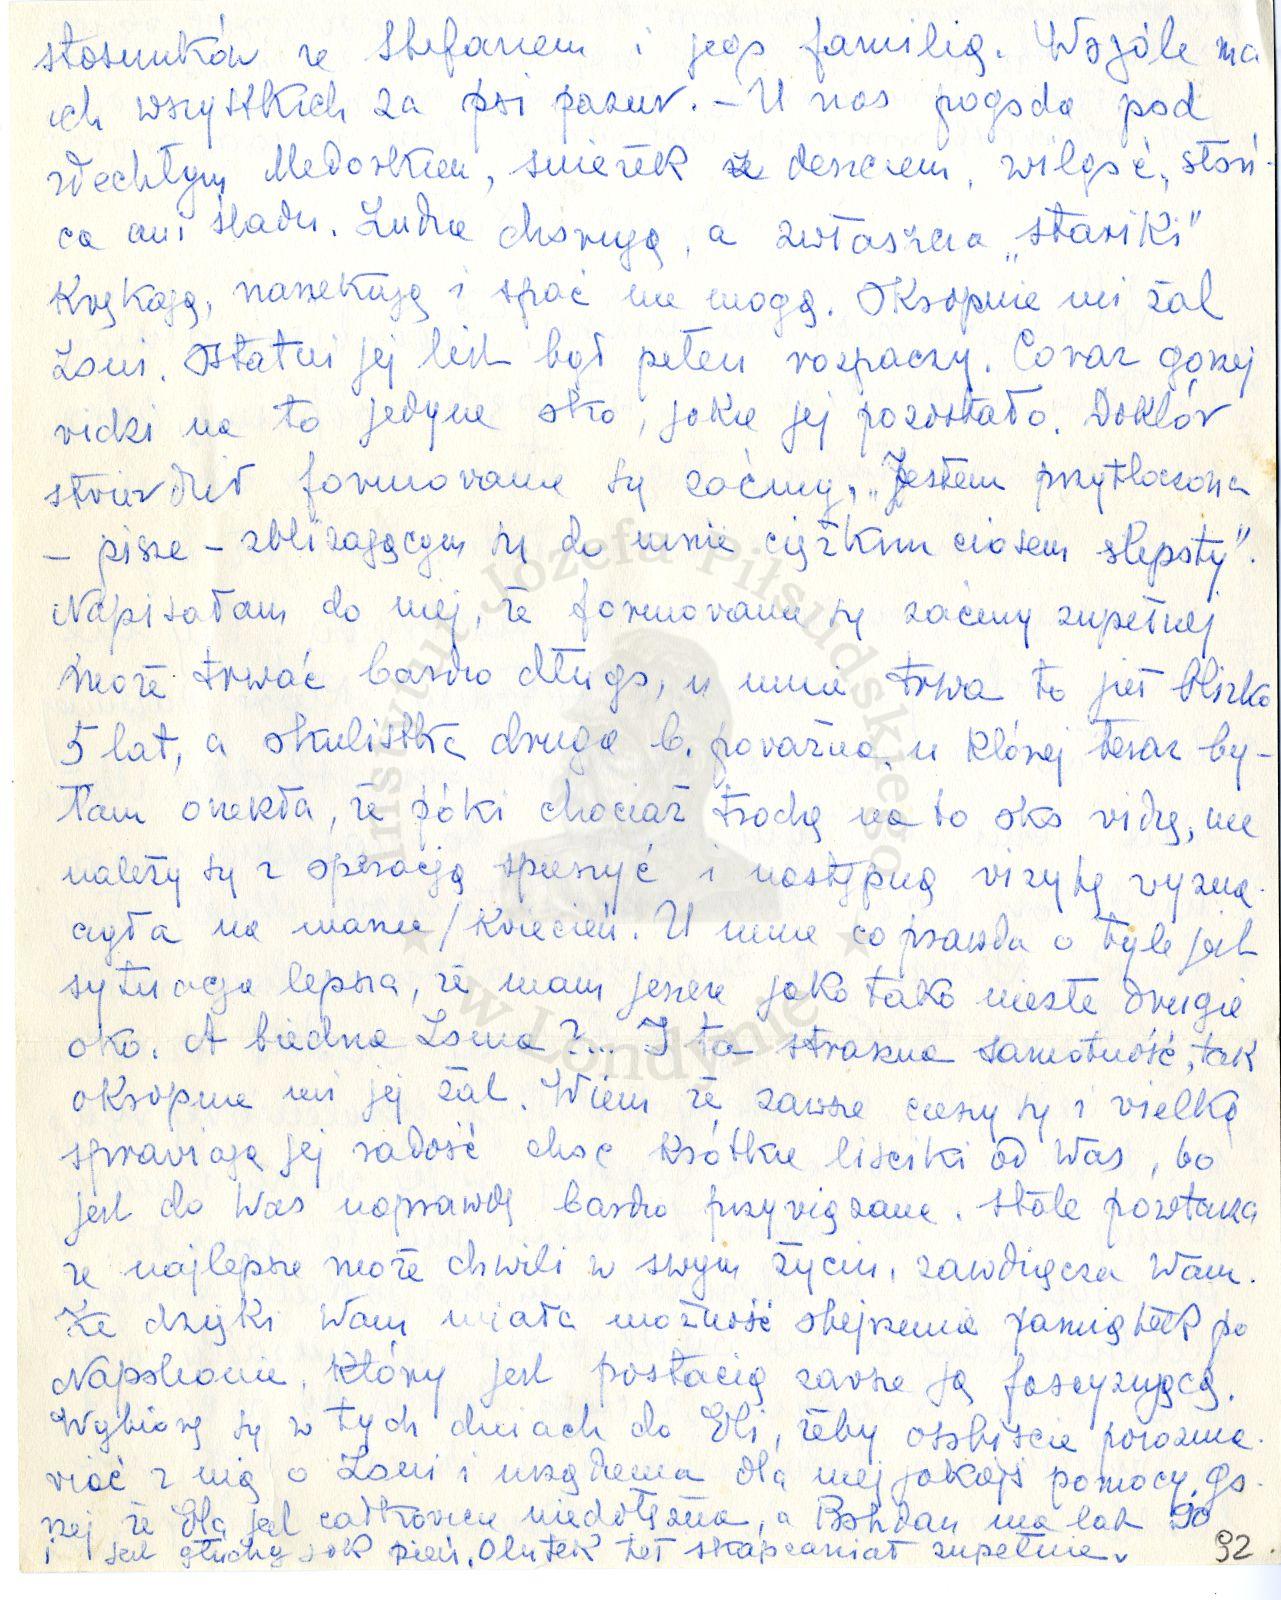 stosunków ze Stefanem i jego familią. Wogóle ma
ich wszystkich za psi pazur. – U nas pogoda pod
zdechłym Medorkiem, śnieżek z deszczem, wilgoć, słoń-
ca ani śladu. Ludzie chorują, a zwłaszcza „stariki"
kwękają, narzekają i spać nie mogą. Okropnie mi żal
Loni. Ostatni jej list był pełen rozpaczy. Coraz gorzej
widzi na to jedyne oko, jakie jej pozostało. Doktór
stwierdził formowanie się zaćmy. „Jestem przytłoczona
– pisze – zbliżającym się do mnie ciężkim ciosem ślepoty".
Napisałam do niej, że formowanie się zaćmy zupełnej
może trwać bardzo długo, u mnie trwa to już blisko
5 lat, a okulistka druga b. poważna, u której teraz by-
łam orzekła, że póki chociaż trochę na to oko widzę, nie
należy się z operacją spieszyć i następną wizytę wyzna-
czyła na marzec/kwiecień. U mnie co prawda o tyle jest
sytuacja lepsza, że mam jeszcze jako tako niezłe drugie
oko. A biedna Lonia?... I ta straszna samotność, tak
okropnie mi jej żal. Wiem że zawsze cieszy się i wielką
sprawiają jej radość choć krótkie liściki od Was, bo
jest do Was naprawdę bardzo przywiązana. Stale powtarza
że najlepsze może chwili w swym życiu, zawdzięcza Wam.
Że dzięki Wam miała możność obejrzenia pamiątek po
Napoleonie, który jest postacią zawsze ją fascynującą.
Wybiorę się w tych dniach do Eli, żeby osobiście porozma-
wiać z nią o Loni i urządzenia dla niej jakiejś pomocy, go-
rzej że Ela jest całkowicie niedołężna, a Bohdan ma lat 90
i jest głuchy jak pień. Olutek też skapcaniał zupełnie.
92
Instytut Józefa Piłsudskiego
w Londynie